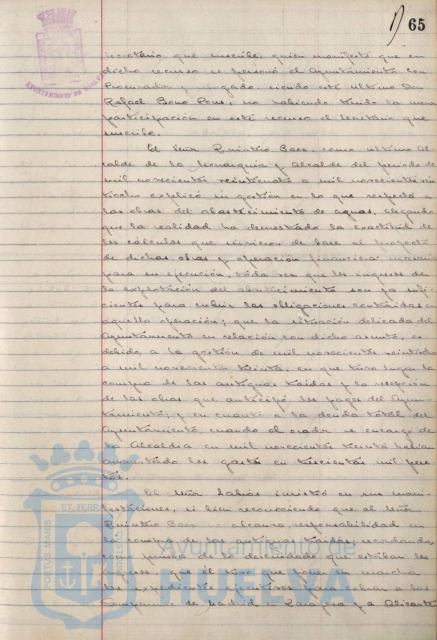 65
AYUNTAMIENTO DE HUELVA
secretario que suscribe, quien manifestó que en
dicho recurso se personó el Ayuntamiento con
Procurador y Abogado, siendo este último Don
Rafael Bono Pons, no habiendo tenido la menor
participación en este recurso el Secretario que
suscribe.
El Señor Quintero Báez, como último Al-
calde de la Monarquía y Alcalde del periodo de
mil novecientos veinticuatro a mil novecientos vein
tiocho explicó su gestión en lo que respecta a
las obras del abastecimiento de aguas, alegando
que la realidad ha demostrado la exactitud de
los cálculos que sirvieron de base al proyecto
de dichas obras y operación financiera necesaria
para su ejecución, toda vez que los ingresos de
la explotación del abastecimiento son ya sufi
cientes para cubrir las obligaciones contraidas en
aquella operación; que la situación delicada del
Ayuntamiento en relación con dicho asunto, es
debido a la gestión de mil novecientos veintiocho
a mil novecientos treinta, en que tuvo lugar la
compra de las antiguas traidas y la recepción
de las obras que anticipó los pagos del Ayun-
tamiento, y en cuanto a la deuda total del
Ayuntamiento, cuando el orador se encargó de
la Alcaldía en mil novecientos treinta habían
aumentado los gastos en trescientas mil pese
tas.
El Señor insistió en sus mani-
festaciones, si bien reconociendo que al Señor
Quintero Báez alcanza responsabilidad en
la compra de las antiguas traidas,
que el
los expedientes para a las
Compañías de Madrid a Zaragoza y a Alicante
PORTUS MARIS ET TERRAE CUSTODIA
Ayuntamiento de
HUELVA